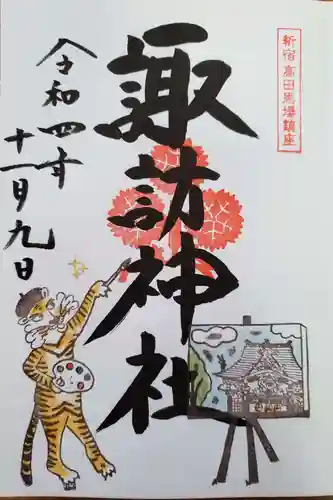 新宿高田馬場鎮座
諏訪神社
令和四年
十一月九日